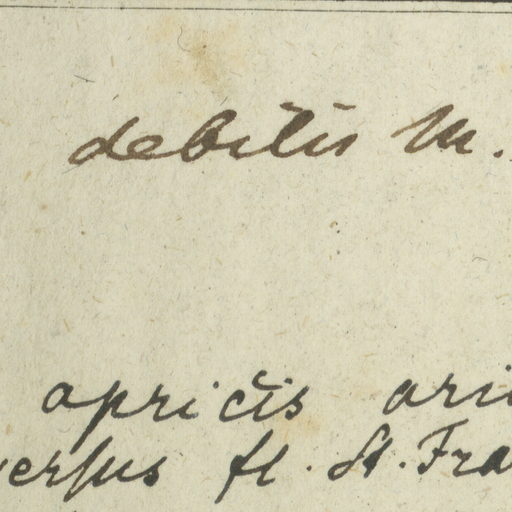 debilis M.
apricis ari
versus fl. St. Fra